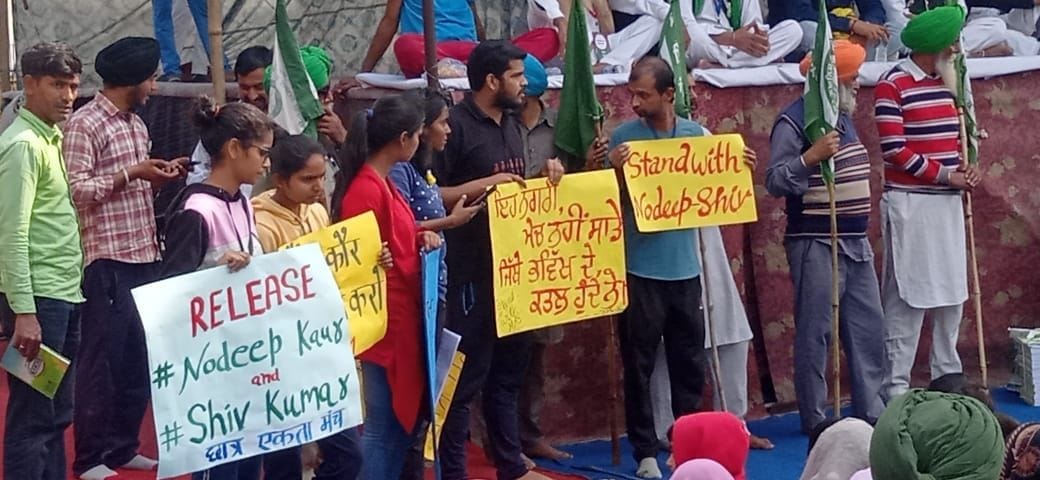 RELEASE
#Nodeep Kaur
and
#Shiv Kumar
छात्र एकता मंच
कौर
करो
ਇਹ ਨਗਰੀ,
ਮੇਚ ਨਹੀਂ ਸਾਡੇ
ਜਿੱਥੇ ਭਵਿੱਖ ਦੇ,
ਕਤਲ ਹੁੰਦੇ ਨੇ।
Stand with
Nodeep-Shiv